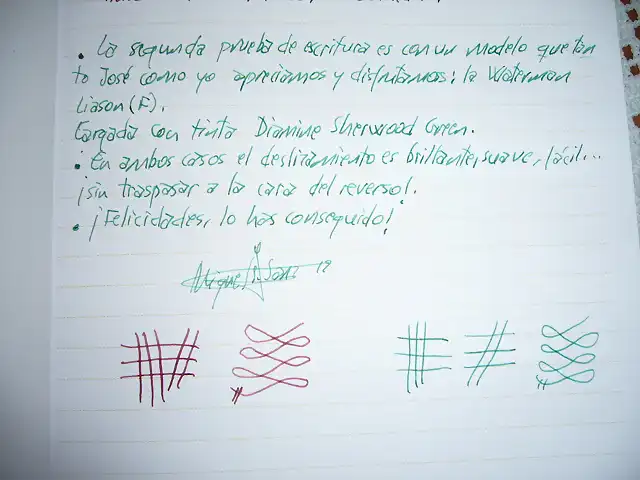 • La segunda prueba de escritura es con un modelo que tan
to José como yo apreciamos y disfrutamos: la Waterman
Liason (F).
Cargada con tinta Diamine Sherwood Green.
• En ambos casos el deslizamiento es brillante, suave, fácil...
¡sin traspasar a la cara del reverso!.
• ¡Felicidades, lo has conseguido!
Miguel